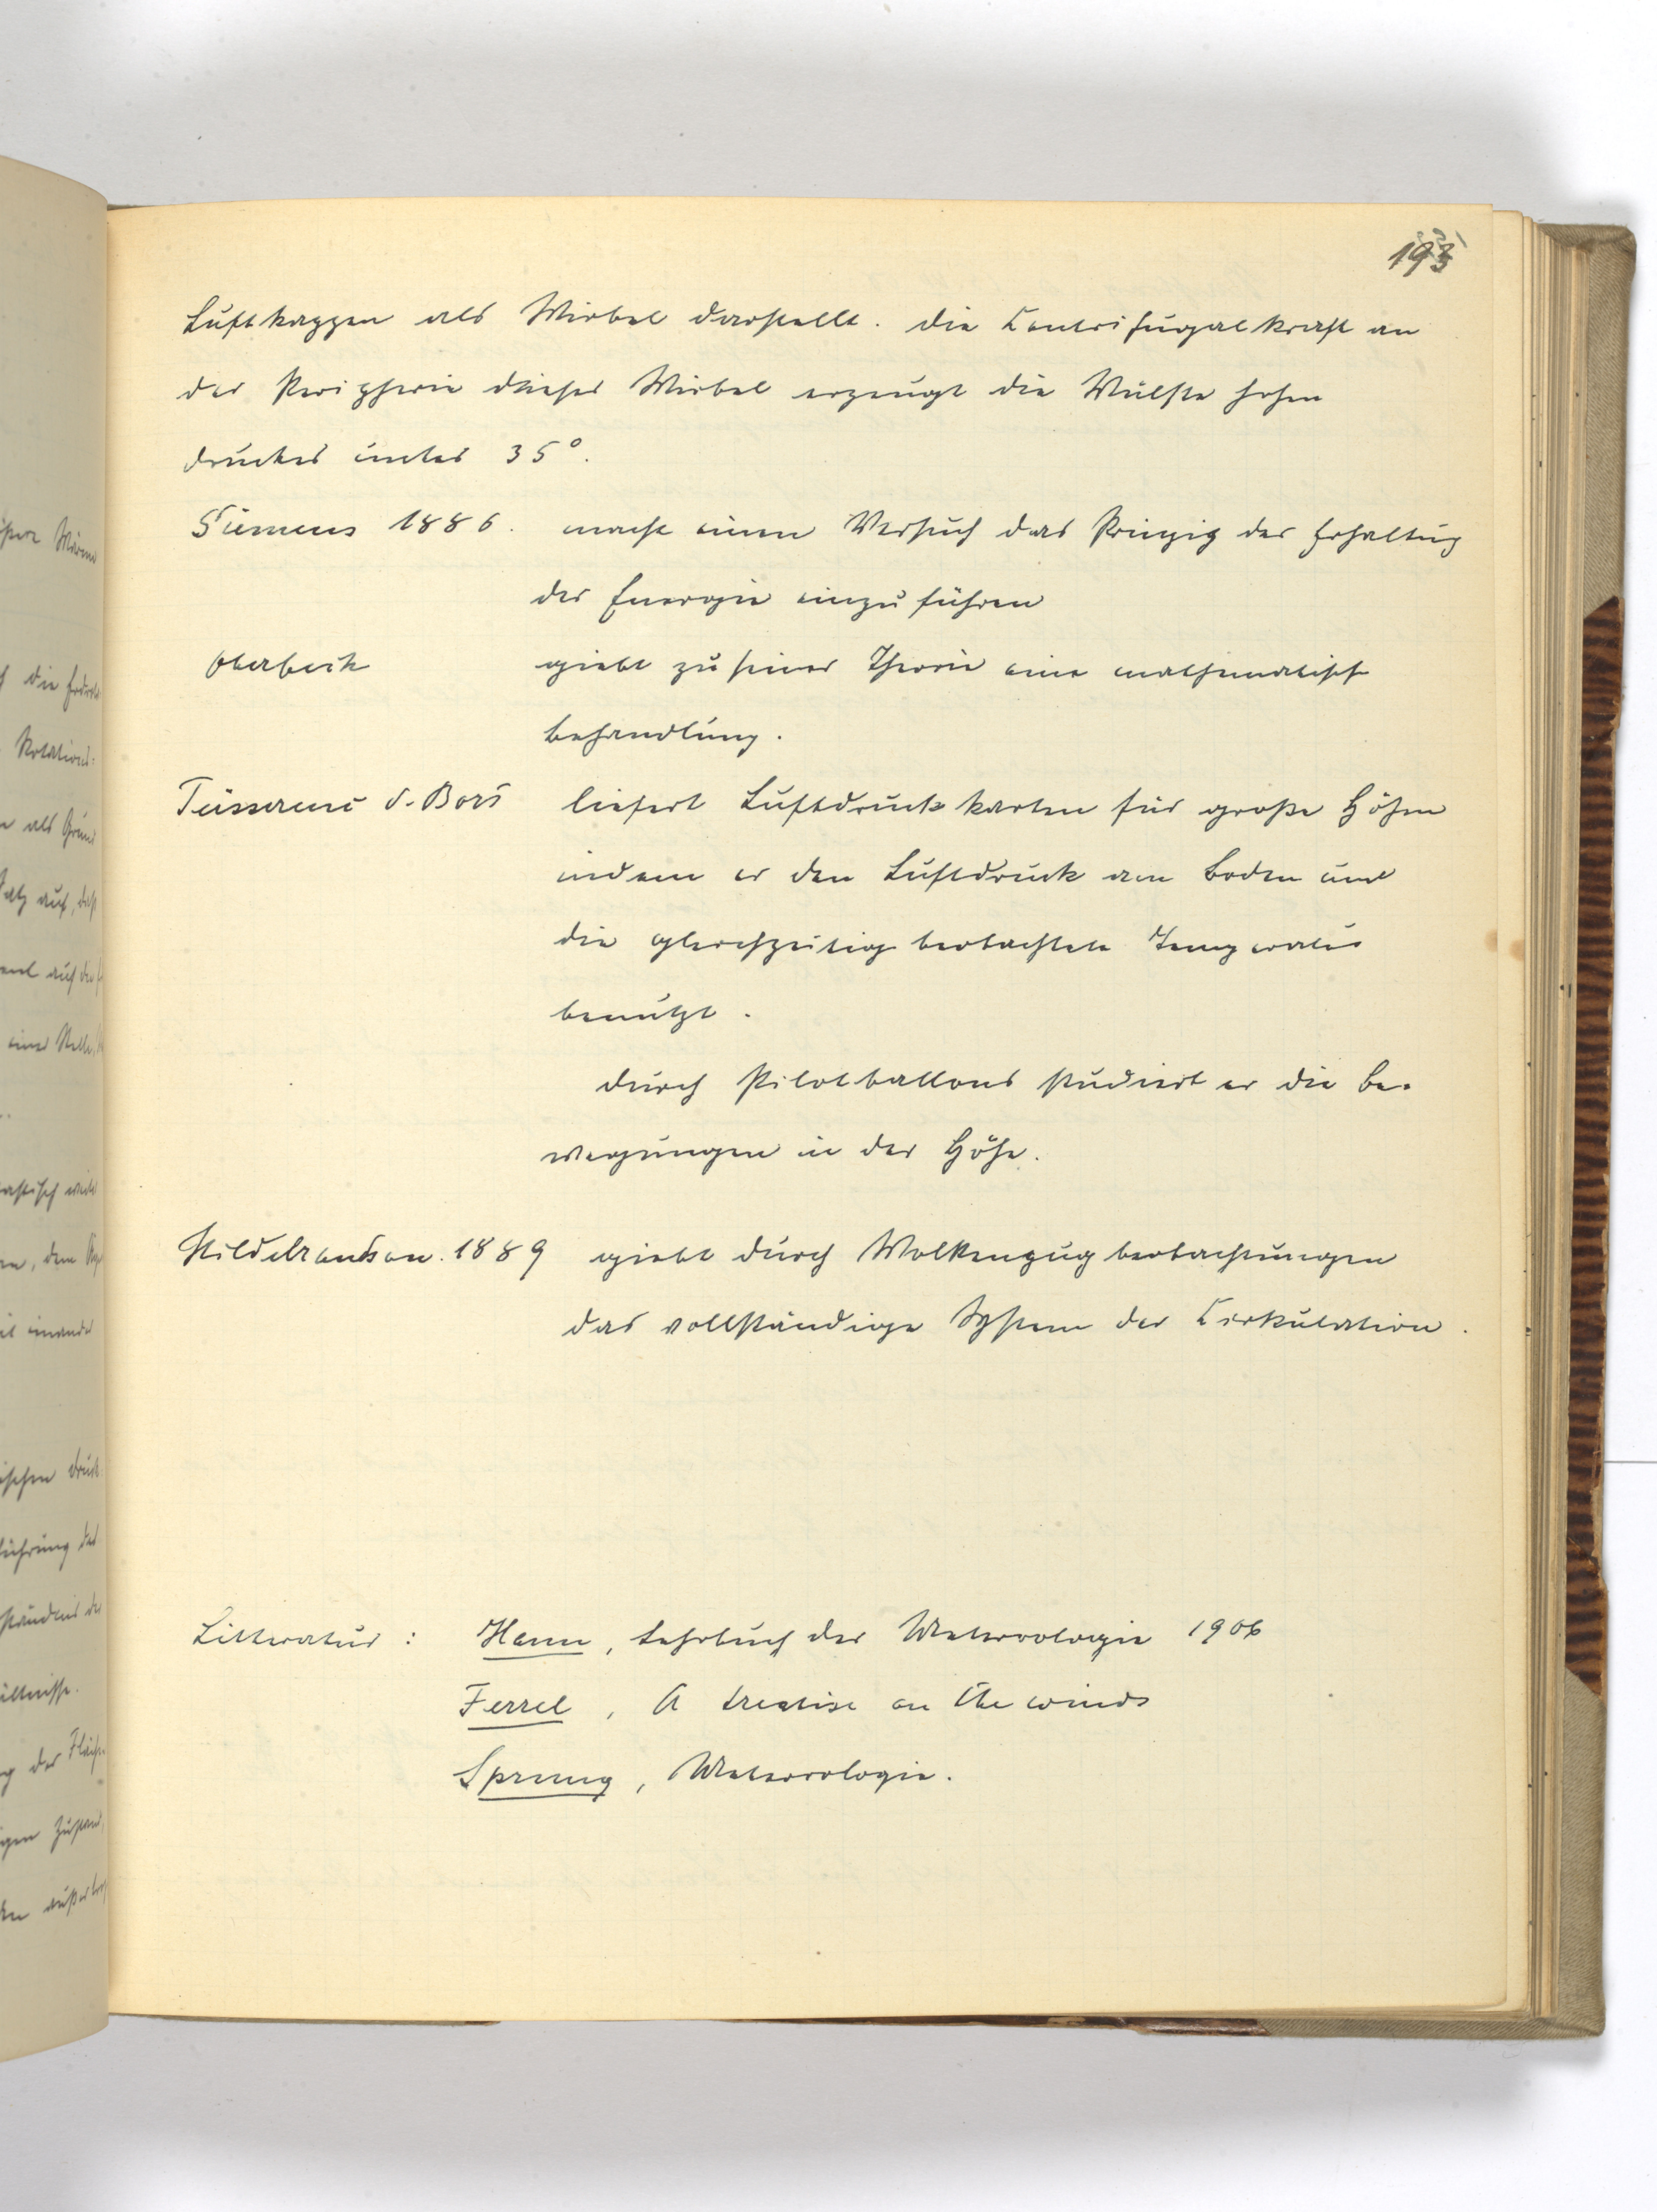 193
Luftkappen als Wirbel darstellt. Die Centrifugalkraft an
der Peripherie dieser Wirbel erzeugt die Wülste hohen
Druckes unter 35°.
Siemens 1886. macht einen Versuch das Prinzip der Erhaltung
der Energie einzuführen
Oberbeck giebt zu seiner Theorie eine mathematische
Behandlung.
Teisserenc d. Bort liefert Luftdruckkarten für große Höhen
indem er den Luftdruck am Boden und
die gleichzeitig beobachtete Temperatur
benutzt.
Durch Pilotballons studiert er die Be-
wegungen in der Höhe.
Hildebrandson. 1889 giebt durch Wolkenzugbeobachtungen
das vollständige System der Cirkulation.
Litteratur: Hann, Lehrbuch der Meteorologie 1906
Ferrel, A treatise on the winds
Sprung, Meteorologie.